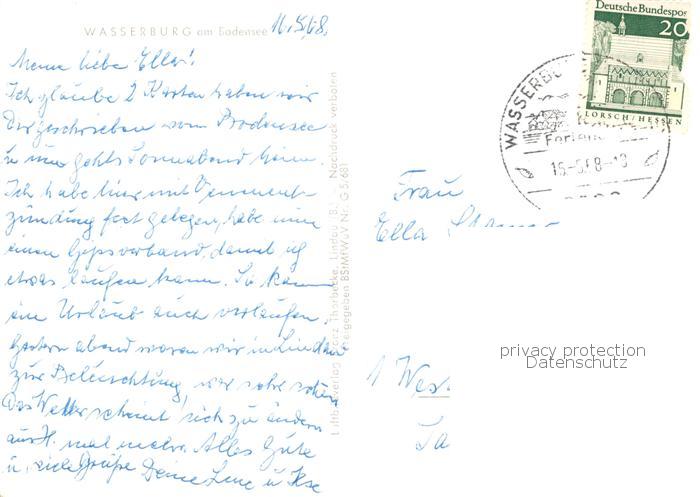 WASSERBURG am Bodensee 16.5.68.
Meine liebe Ella!
Ich glaube 2 Karten haben wir
Dir geschrieben vom Bodensee
u. nun gehts Sonnabend heim.
Ich habe hier mit Venenent-
zündung fest gelegen, habe nun
einen Gipsverband, damit ich
etwas laufen kann. So kann
ein Urlaub auch verlaufen.
Gestern abend waren wir in Lindau
zur Beleuchtung, war sehr schön
Das Wetter scheint sich zu ändern
mal mehr. Alles Gute
u. viele Grüße Deine Lene u Ilse
Luftbildverlag Franz Thorbecke, Lindau (B.) - Nachdruck verboten
Freigegeben BStMfWuV Nr. G 5/681
Deutsche Bundespos
20
LORSCH/HESSEN
WASSERBU
Ferien
16.-5.68-18
Frau
Ella
1 Wes
privacy protection
Datenschutz